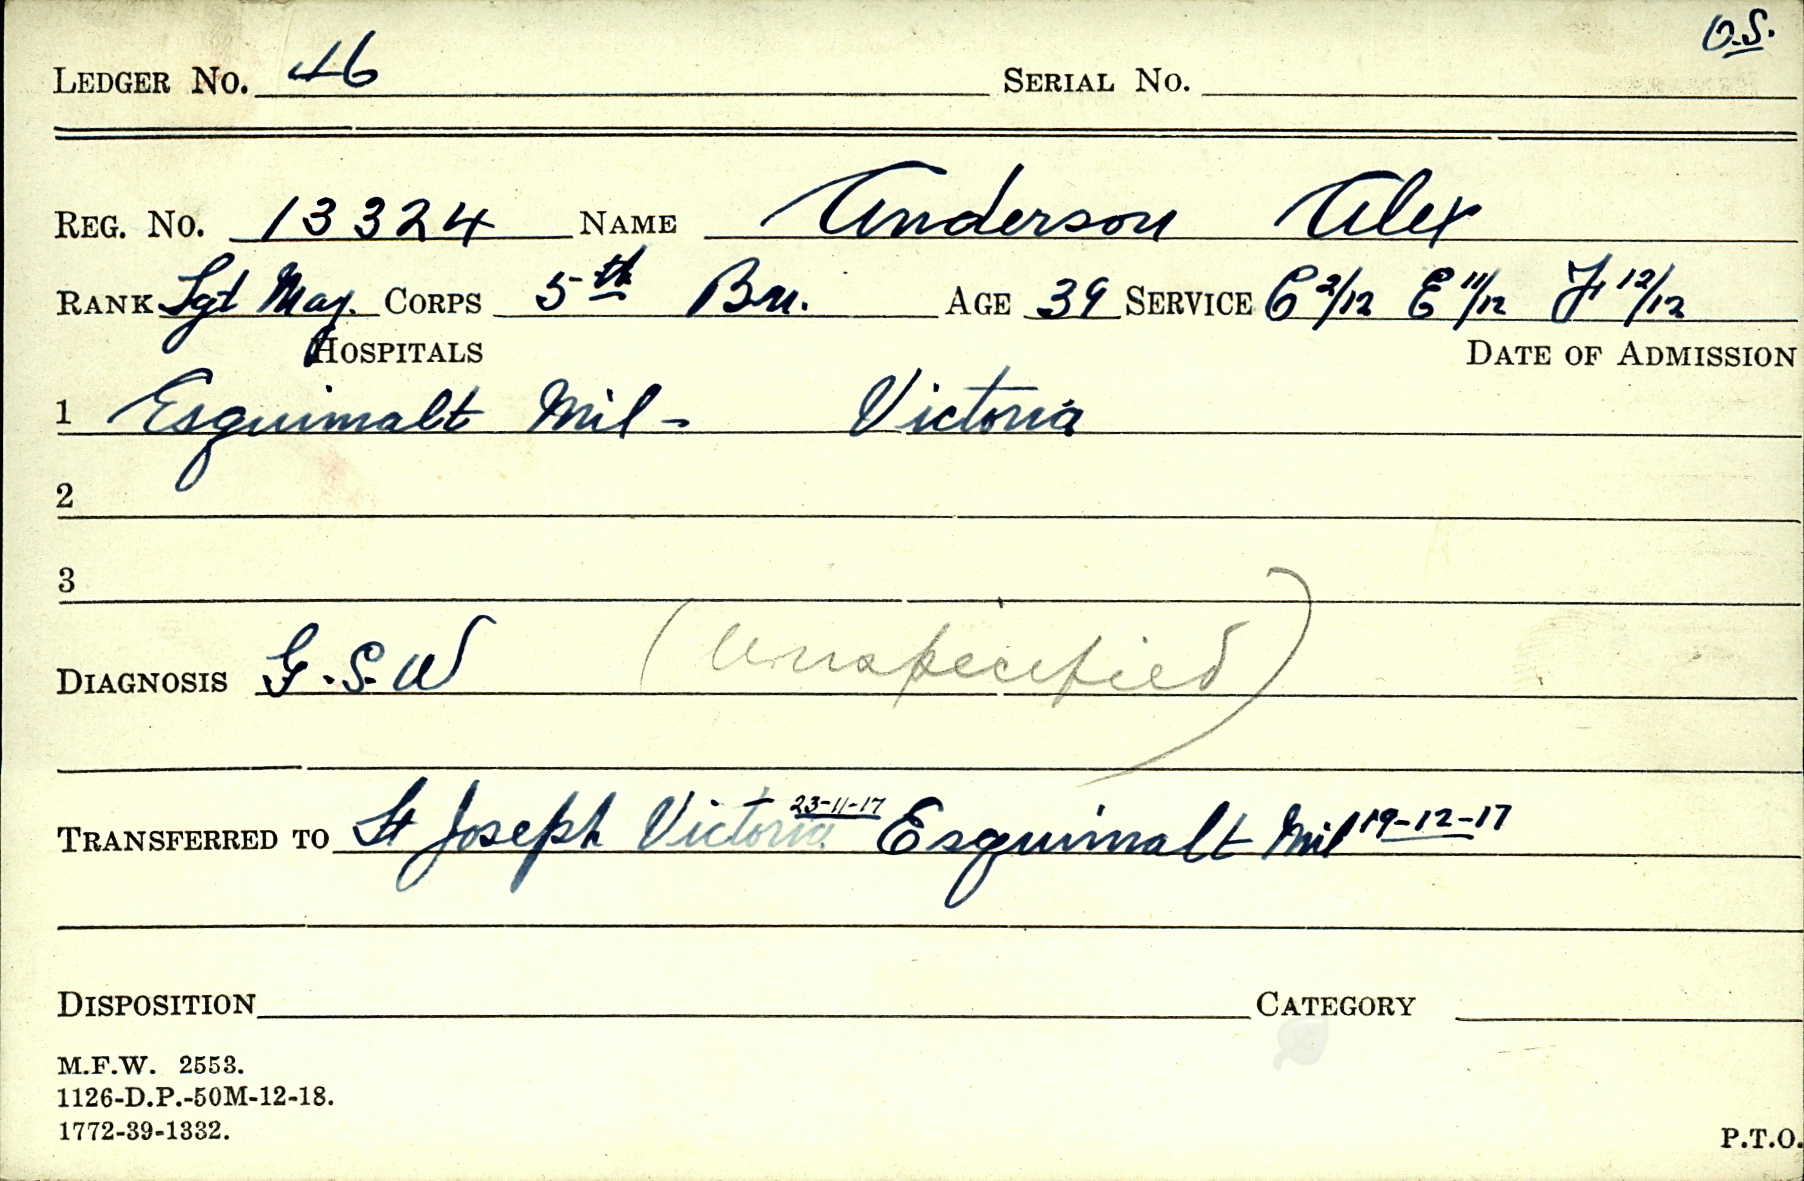 O.S.
LEDGER NO. 46 SERIAL NO.
REG. NO. 13324 NAME Anderson Alex
RANK Sgt Maj. CORPS 5th Bn. AGE 39 SERVICE C 2/12 E 11/12 F 12/12
HOSPITALS DATE OF ADMISSION
1 Esquimalt Mil - Victoria
2
3
DIAGNOSIS G.S.W (Unspecified)
TRANSFERRED TO St Joseph Victoria 23-11-17 Esquimalt Mil 19-12-17
DISPOSITION CATEGORY
M.F.W. 2553.
1126-D.P.-50M-12-18.
1772-39-1332.
P.T.O.